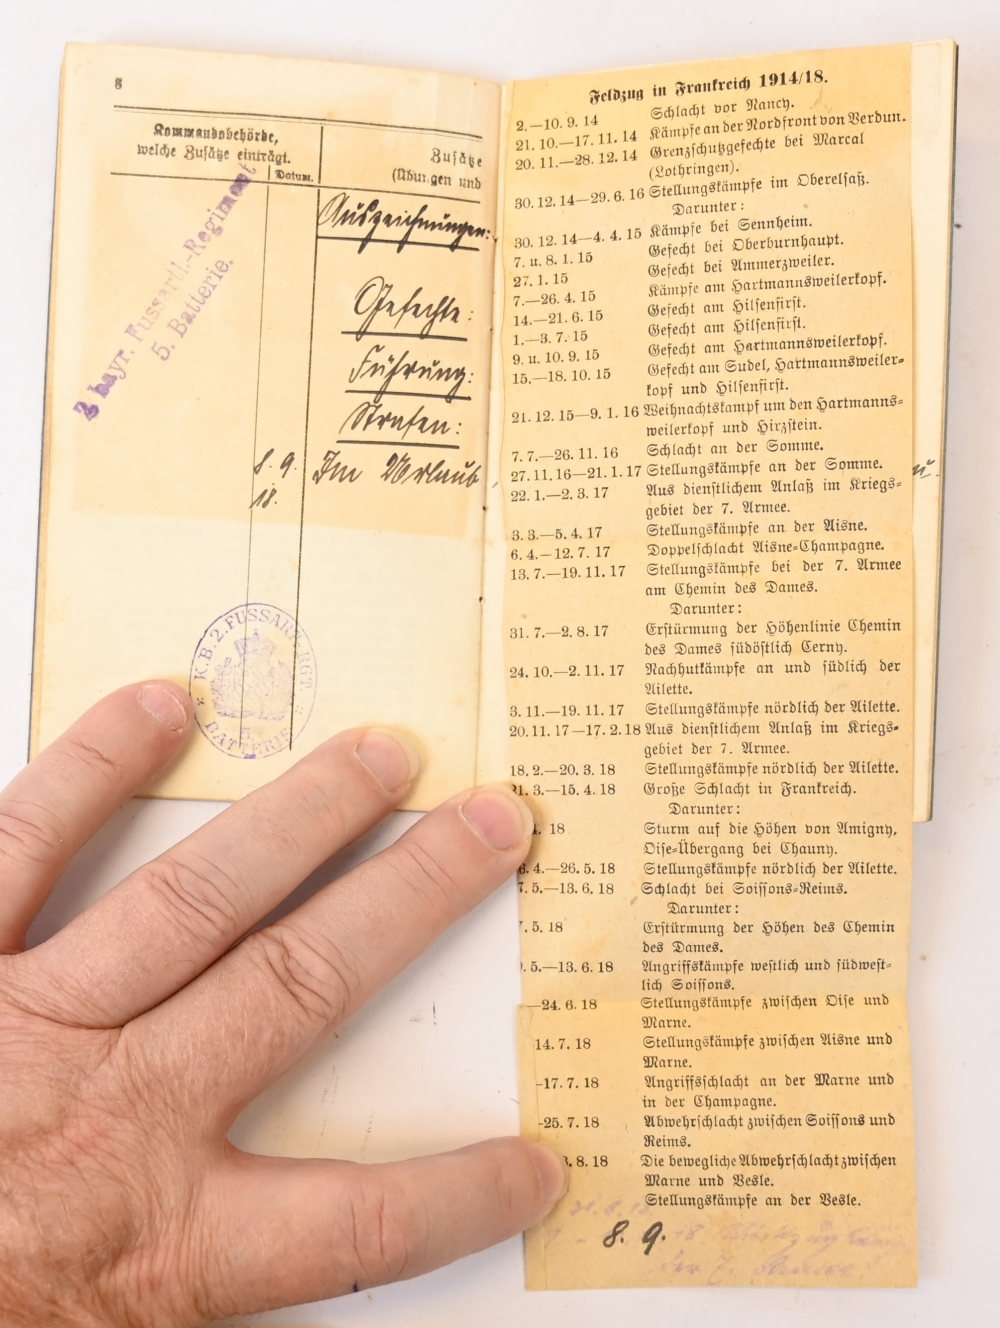 8
Kommandobehörde,
welche Zusätze einträgt.
Datum.
Zusätze
(Übungen und
2 bayr. Fussartl.-Regiment
5. Batterie.
Auszeichnungen:
Gefechte:
Führung:
Strafen:
8. 9. Im Urlaub
18.
K.B.2.FUSSART.RGT.
5.
BATTERIE
Feldzug in Frankreich 1914/18.
2.—10. 9. 14 Schlacht vor Nancy.
21. 10.—17. 11. 14 Kämpfe an der Nordfront von Verdun.
20. 11.—28. 12. 14 Grenzschutzgefechte bei Marcal
(Lothringen).
30. 12. 14—29. 6. 16 Stellungskämpfe im Oberelsaß.
Darunter:
30. 12. 14—4. 4. 15 Kämpfe bei Sennheim.
7. u. 8. 1. 15 Gefecht bei Oberburnhaupt.
27. 1. 15 Gefecht bei Ammerzweiler.
7.—26. 4. 15 Kämpfe am Hartmannsweilerkopf.
14.—21. 6. 15 Gefecht am Hilsenfirst.
1.—3. 7. 15 Gefecht am Hilsenfirst.
9. u. 10. 9. 15 Gefecht am Hartmannsweilerkopf.
15.—18. 10. 15 Gefecht am Sudel, Hartmannsweiler-
kopf und Hilsenfirst.
21. 12. 15—9. 1. 16 Weihnachtskampf um den Hartmanns-
weilerkopf und Hirzstein.
7. 7.—26. 11. 16 Schlacht an der Somme.
27. 11. 16—21. 1. 17 Stellungskämpfe an der Somme.
u.
22. 1.—2. 3. 17 Aus dienstlichem Anlaß im Kriegs-
gebiet der 7. Armee.
3. 3.—5. 4. 17 Stellungskämpfe an der Aisne.
6. 4.—12. 7. 17 Doppelschlacht Aisne-Champagne.
13. 7.—19. 11. 17 Stellungskämpfe bei der 7. Armee
am Chemin des Dames.
Darunter:
31. 7.—2. 8. 17 Erstürmung der Höhenlinie Chemin
des Dames südöstlich Cerny.
24. 10.—2. 11. 17 Nachhutkämpfe an und südlich der
Ailette.
3. 11.—19. 11. 17 Stellungskämpfe nördlich der Ailette.
20. 11. 17—17. 2. 18 Aus dienstlichem Anlaß im Kriegs-
gebiet der 7. Armee.
18. 2.—20. 3. 18 Stellungskämpfe nördlich der Ailette.
21. 3.—15. 4. 18 Große Schlacht in Frankreich.
Darunter:
4. 18 Sturm auf die Höhen von Amigny,
Oise-Übergang bei Chauny.
6. 4.—26. 5. 18 Stellungskämpfe nördlich der Ailette.
7. 5.—13. 6. 18 Schlacht bei Soissons-Reims.
Darunter:
5. 18 Erstürmung der Höhen des Chemin
des Dames.
5.—13. 6. 18 Angriffskämpfe westlich und südwest-
lich Soissons.
—24. 6. 18 Stellungskämpfe zwischen Oise und
Marne.
14. 7. 18 Stellungskämpfe zwischen Aisne und
Marne.
-17. 7. 18 Angriffsschlacht an der Marne und
in der Champagne.
-25. 7. 18 Abwehrschlacht zwischen Soissons und
Reims.
8. 18 Die bewegliche Abwehrschlacht zwischen
Marne und Vesle.
Stellungskämpfe an der Vesle.
8. 9.
der 7. Armee